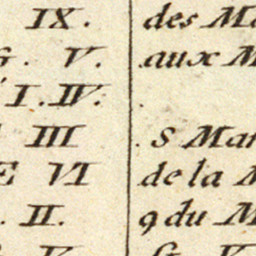 IX. des Ma
G. V. aux M
I. IV.
III s Mar
E VI de la M
. II. 9 du M